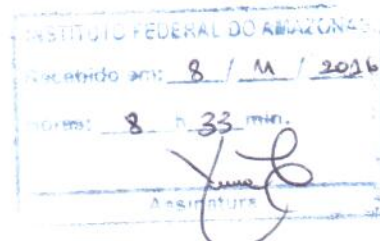 INSTITUTO FEDERAL DO AMAZONAS
Recebido em: 8 / 11 / 2016
Horas: 8 h 33 min.
Assinatura